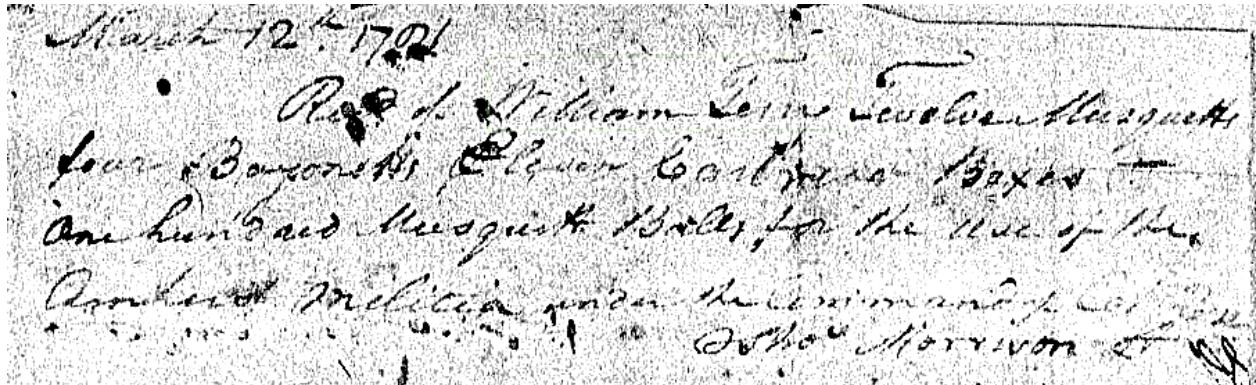 March 12th 1781
Recd of William Twelve Musquetts
four Bayonetts Eleven Boxes
One hundred Musquett Balls, for the Use of the
Amherst Militia under the Command of Col
Thos Morrison